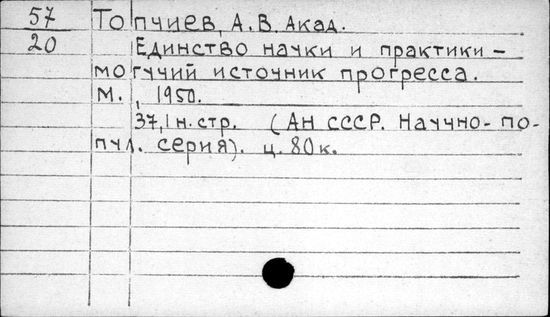 57 Топчиев, А.В. Акад.
20 Единство науки и практики –
могучий источник прогресса.
М., 1950.
37,1 н. стр. (АН СССР. Научно-по-
пул. серия). ц. 80 к.